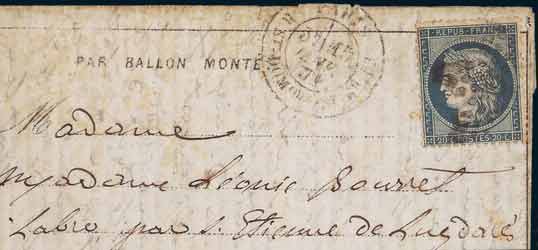 REPUB. FRANC.
PAR BALLON MONTÉ
20 C POSTES 20 C
Madame
Madame Léonie
Labro par St Etienne de Lugdarès